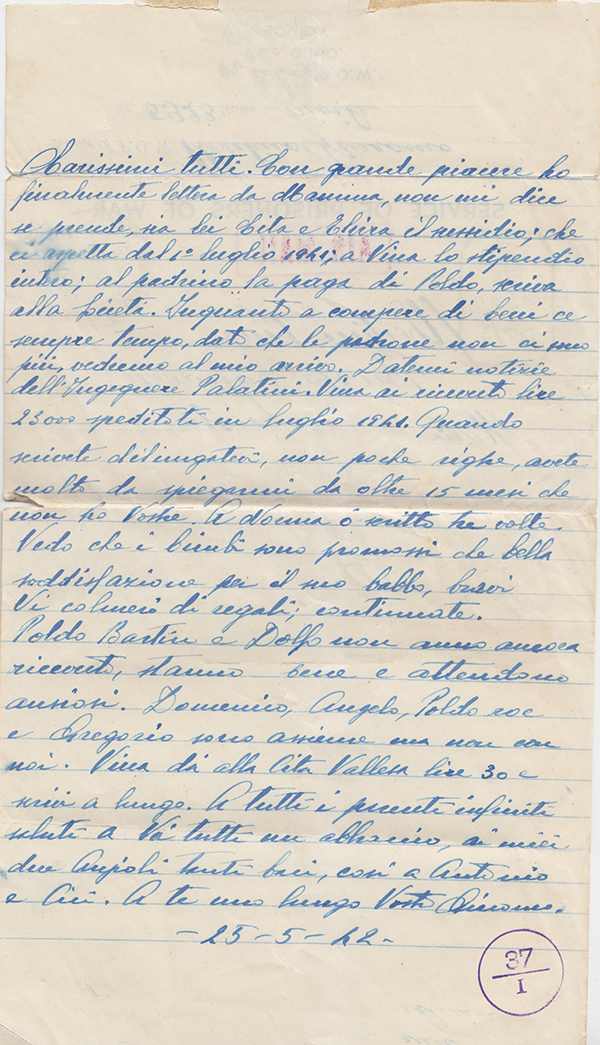 Carissimi tutti. Con grande piacere ho
finalmente lettera da Mamma, non mi dice
se prende, sia lei Cita e Elvira il sussidio; che
ci aspetta dal 1° luglio 1941; a Vina lo stipendio
intero; al padrino la paga di Poldo, scriva
alla Società. Inquanto a compere di beni ce
sempre tempo, dato che le persone non ci sono
più, vedremo al mio arrivo. Datemi notizie
dell'Ingegnere Palatini. Vina ai ricevuto lire
23000 speditoti in luglio 1941. Quando
scrivete dilungatevi, non poche righe, avete
molto da spiegarmi da oltre 15 mesi che
non ho Vostre. A Nonna ó scritto tre volte.
Vedo che i bimbi sono promossi che bella
soddisfazione per il suo babbo, bravi
Vi colmerò di regali; continuate.
Poldo Bastin e Dolfo non anno ancora
ricevuto, stanno bene e attendono
ansiosi. Domenico, Angelo, Poldo roc
e Gregorio sono assieme ma non con
noi. Vina dà alla Cita Vallesa lire 30 e
scrivi a lungo. A tutti i parenti infiniti
saluti a Voi tutti un abbraccio, ai miei
due Angioli tanti baci, così a Antonio
e A te uno lungo Vostro Giacomo.
-25-5-42-
37
I
SERVICE OF PRISONERS OF WAR